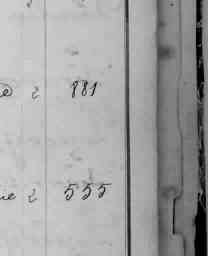 e 2 881
e 2 555